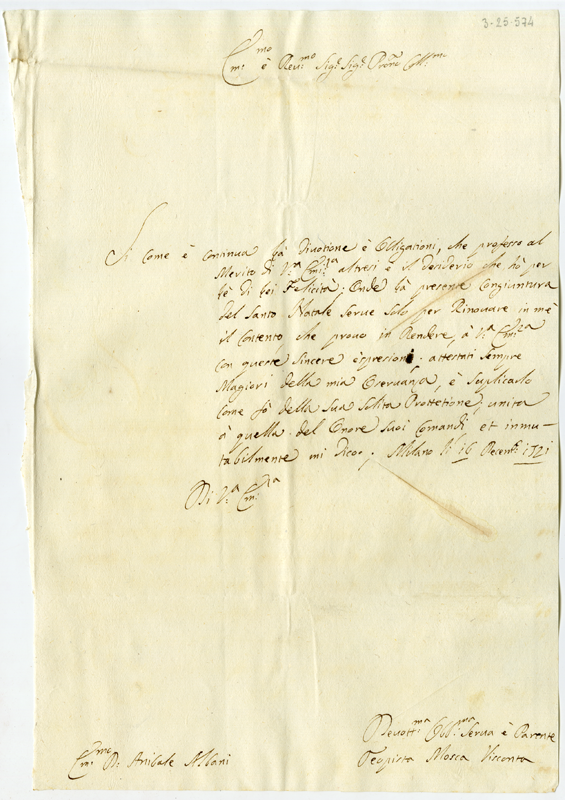 3-25-574
Em:mo è Reu:mo Sig:r Sig:r Prõne Coll:mo
Si come è continua la Diuotione è Obligationi, che professo al
Merito di V:a Em:za altresi è il desiderio che hò per
le di lei Felicità; Onde la presente Congiuntura
del Santo Natale serue solo per Rinouare in mè
il Contento che prouo in Rendere, à V:a Em:za
con queste sincere espresioni attestati sempre
Magiori della mia Oseruanza, è suplicarlo
come fò della sua solita Prottetione, unita
à quella del Onore suoi Comandi et inmu-
tabilmente mi dico; Milano li 16 Decemb: 1721
Di V:a Em:za
Deuott:ma Obb:ma Serua è Parente
Em:mo D: Anibale Albani
Teopista Mosca Visconta